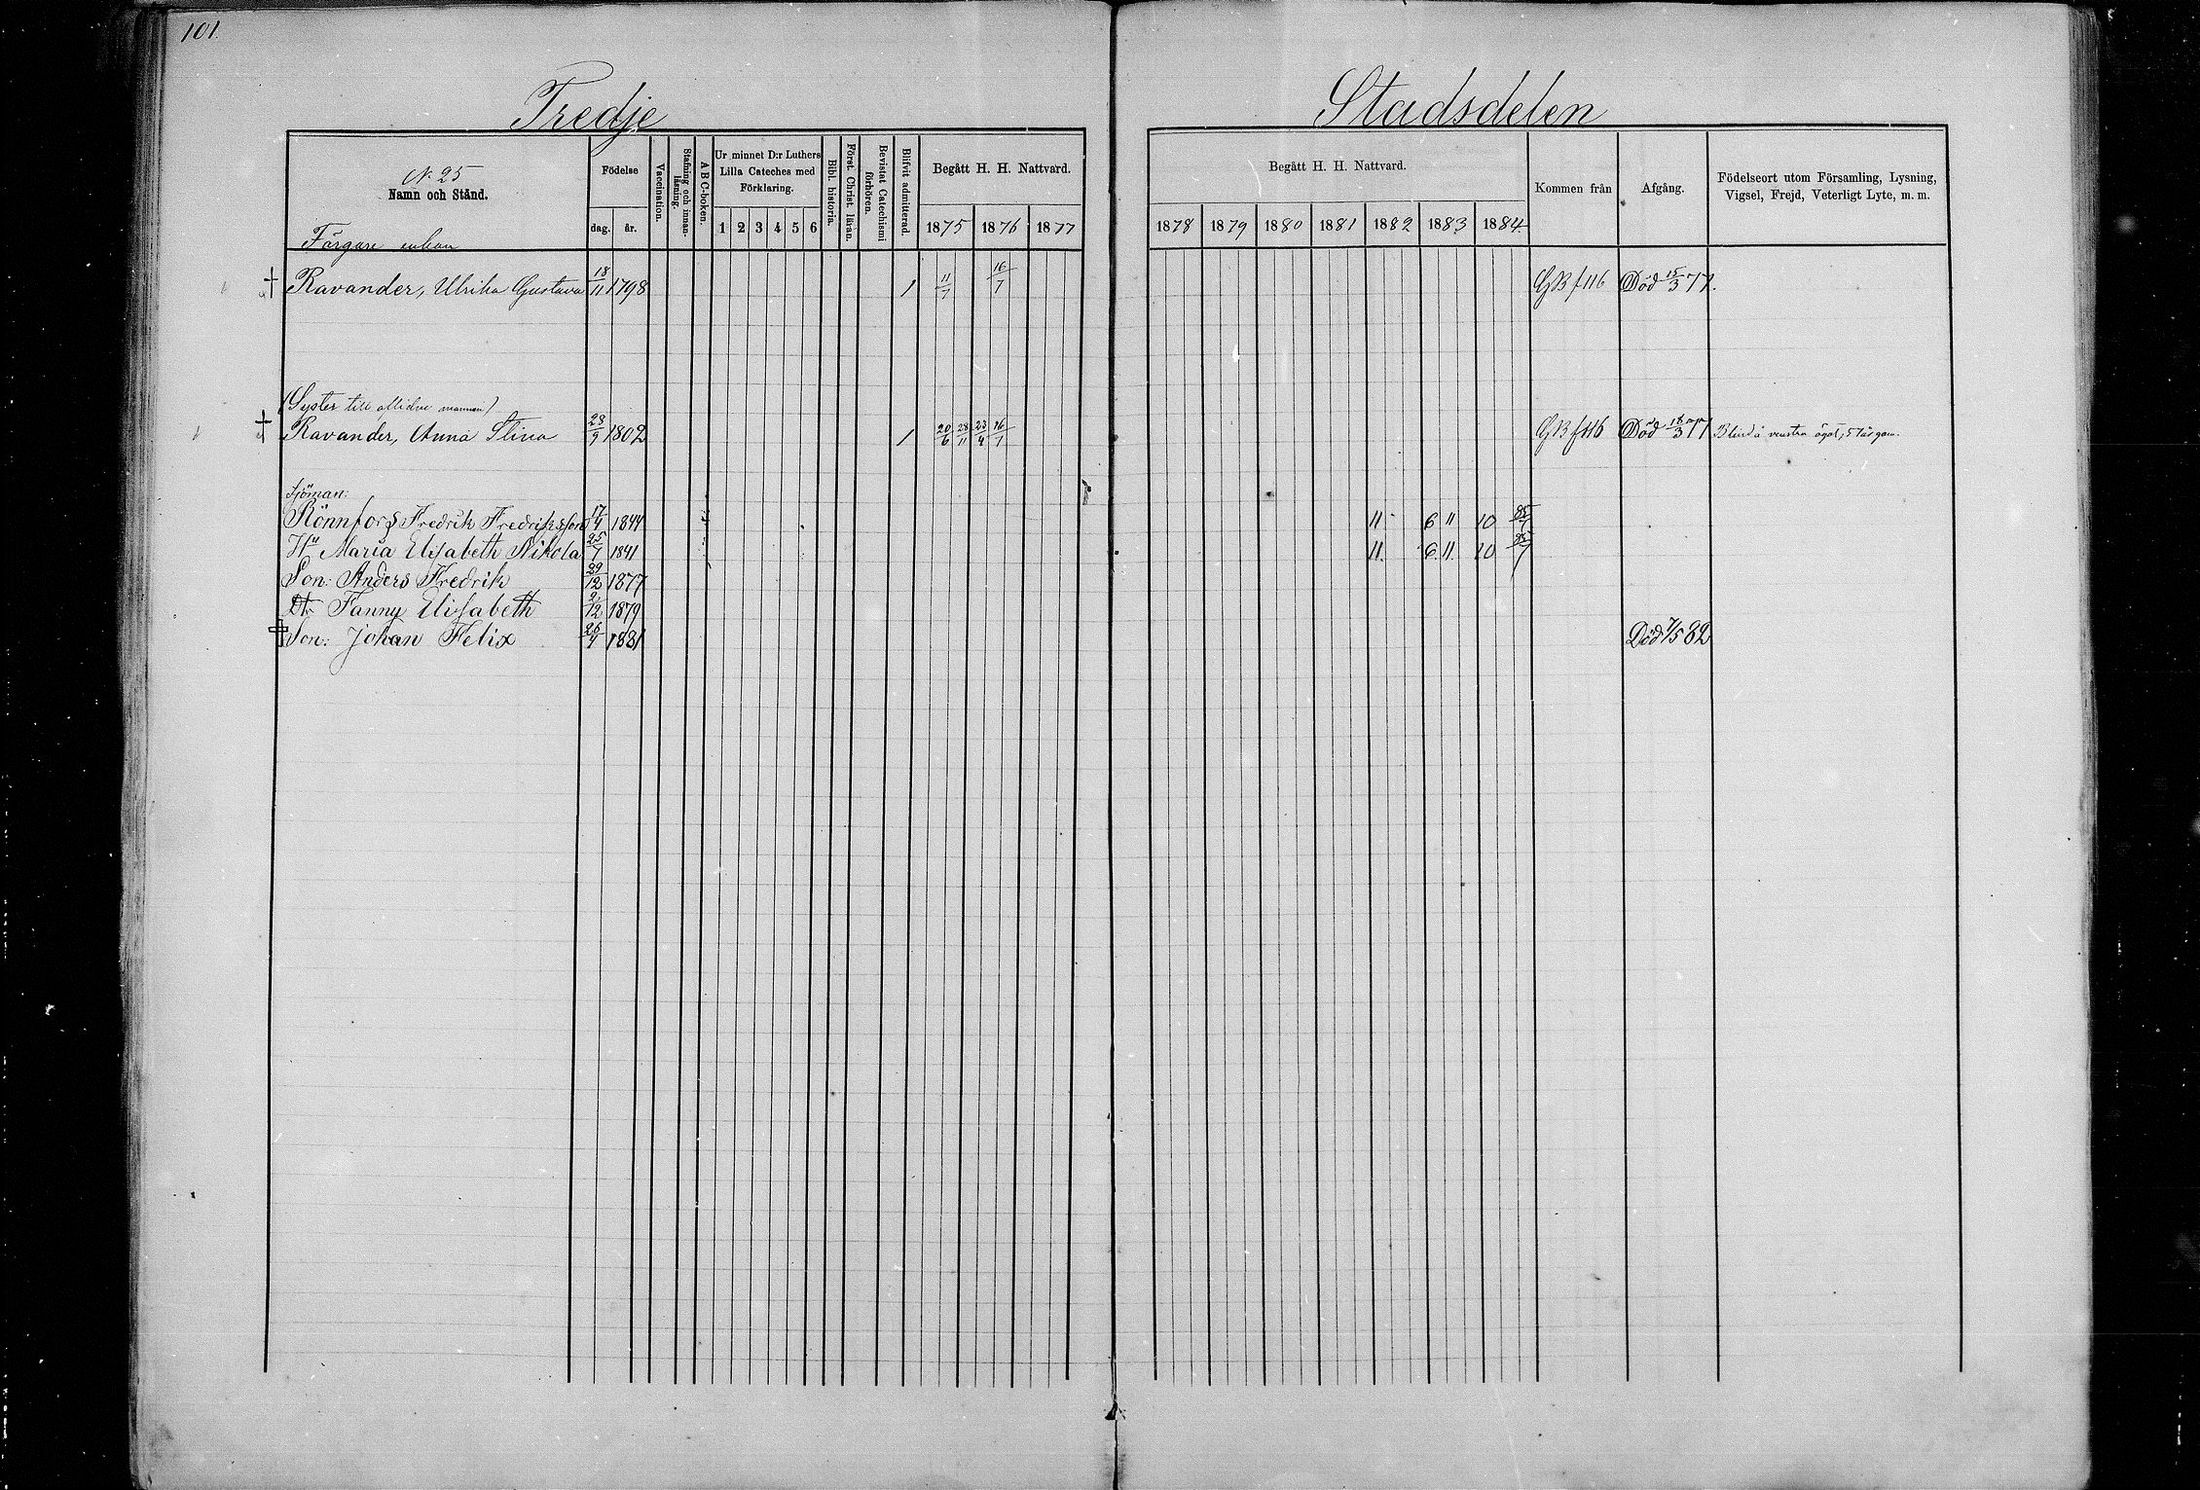 101.
Tredje Stadsdelen
N. 25
Namn och Stånd.
Födelse
dag. år.
Vaccination.
Stafning och innanläsning.
ABC-boken.
Ur minnet D:r Luthers Lilla Cateches med Förklaring.
1 2 3 4 5 6
Bibl. historia.
Först. Christ. läran.
Bevistat Catechismi förhören.
Blifvit admitterad.
Begått H. H. Nattvard.
1875 1876 1877
Begått H. H. Nattvard.
1878 1879 1880 1881 1882 1883 1884
Kommen från
Afgång.
Födelseort utom Församling, Lysning, Vigsel, Frejd, Veterligt Lyte, m. m.
Färgare enkan
† Ravander, Ulrika Gustava 18/11 1798 1 11/7 16/7 GB f 116 Död 15/3 77.
(Syster till aflidne mannen)
† Ravander, Anna Stina 23/9 1802 1 20/6 28/11 23/4 16/7 GB f 116 Död 18/3 77 Blind å venstra ögat,
Sjöman:
Rönnfors Fredrik Fredriksson 17/4 1844 11 6 11 10 85/7
Hu Maria Elisabeth Nikola 25/7 1841 11. 6. 11. 10 85/7
Son: Anders Fredrik 29/12 1877
Dtr Fanny Elisabeth 2/12 1879
† Son: Johan Felix 26/4 1881 Död 7/5 82